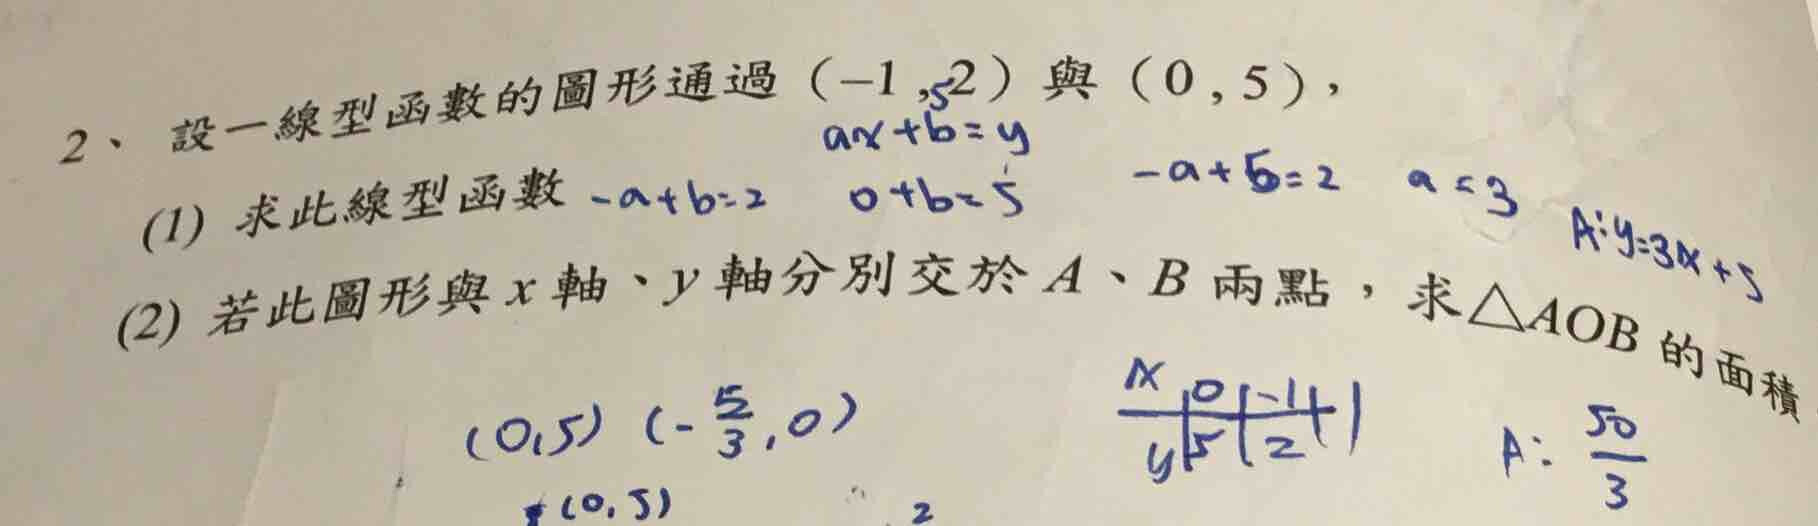 2、設一線型函數的圖形通過(−1,2)與(0,5),
5
ax+b=y
(1) 求此線型函數 -a+b=2 0+b=5 -a+5=2 a=3 A:y=3x+5
(2) 若此圖形與 x 軸、y 軸分別交於 A、B 兩點,求△AOB 的面積
(0,5) (-5/3,0)
x 0 -1
y 5 2
A: 50/3
(0,5)
2